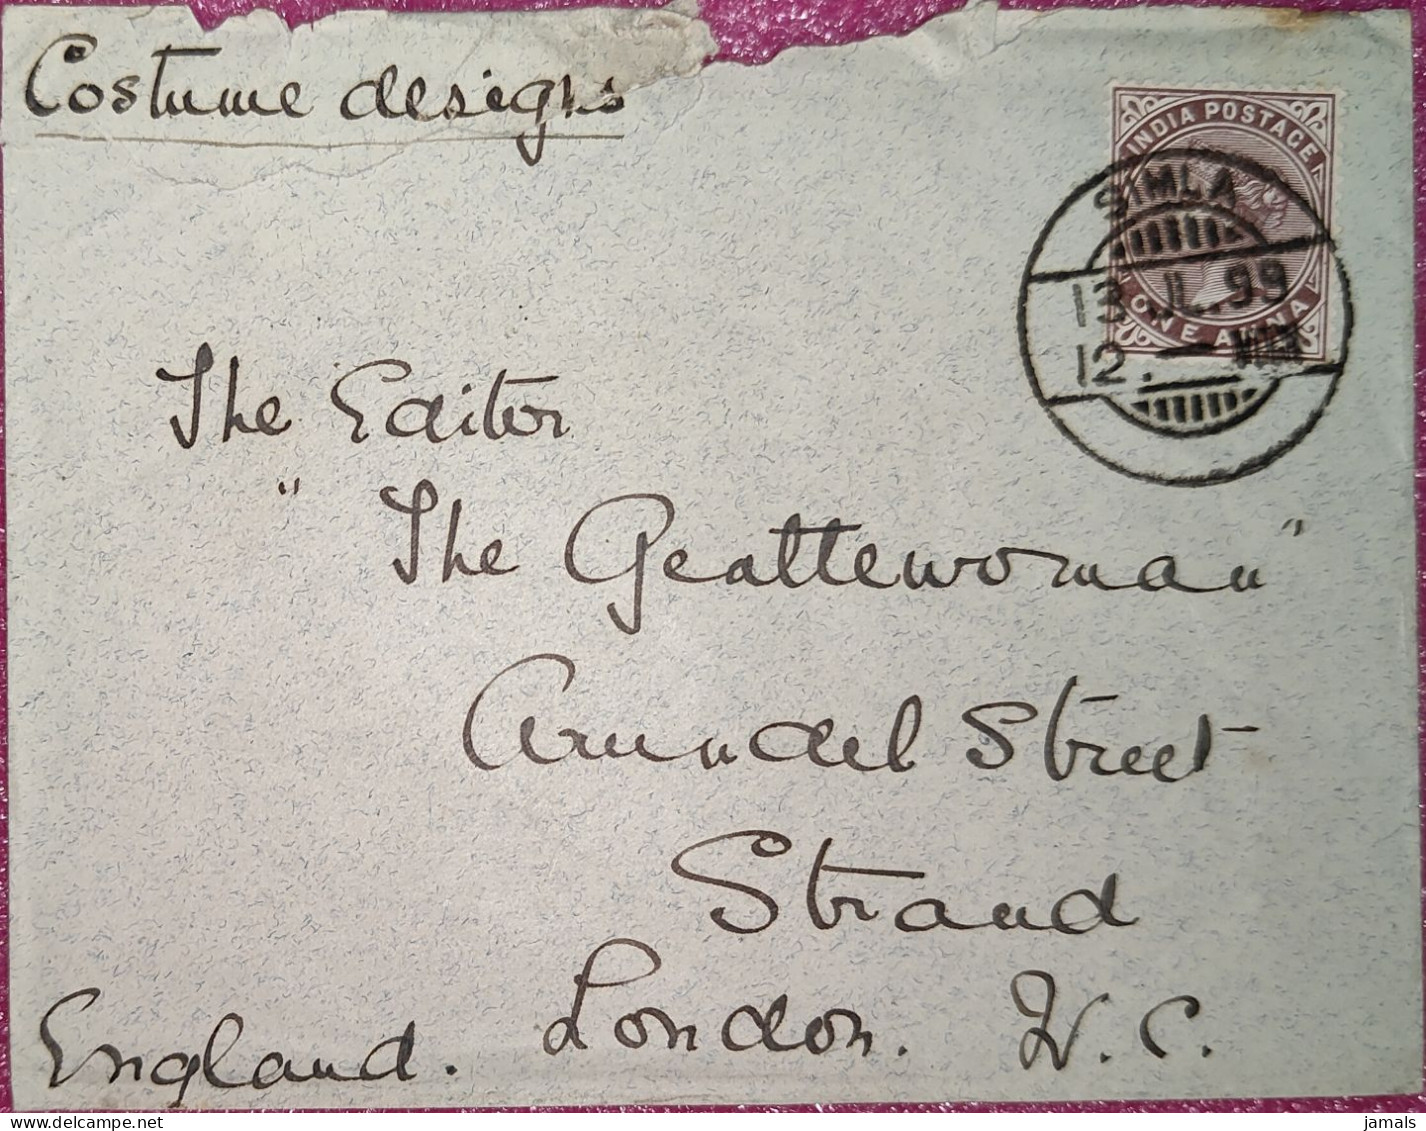 Costume designs
INDIA POSTAGE
SIMLA
13. JL. 99
12. —
ONE ANNA
The Editor
"The Gentlewoman"
Arundel Street
Strand
London. W. C.
England.
jamals